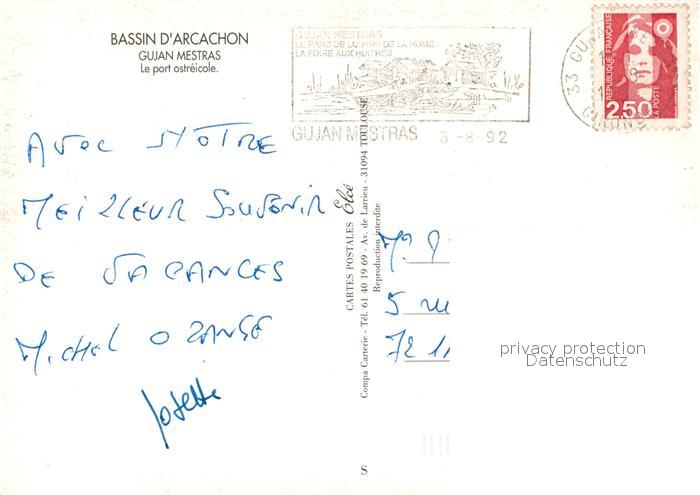 BASSIN D'ARCACHON
GUJAN MESTRAS
Le port ostréicole.
GUJAN MESTRAS
LE PARC DE LOISIRS DE LA HUME
LA FOIRE AUX HUITRES
GUJAN MESTRAS 3-8-92
33 GUJAN
GIRONDE
REPUBLIQUE FRANÇAISE
2,50
LA POSTE
AVEC NOTRE
MEILLEUR SOUVENIR
DE VACANCES
MICHEL
Josette
CARTES POSTALES Elcé
Compa Carterie - Tél. 61 40 19 69 - Av. de Larrieu - 31094 TOULOUSE
Reproduction interdite
5 rue
72
privacy protection
Datenschutz
S